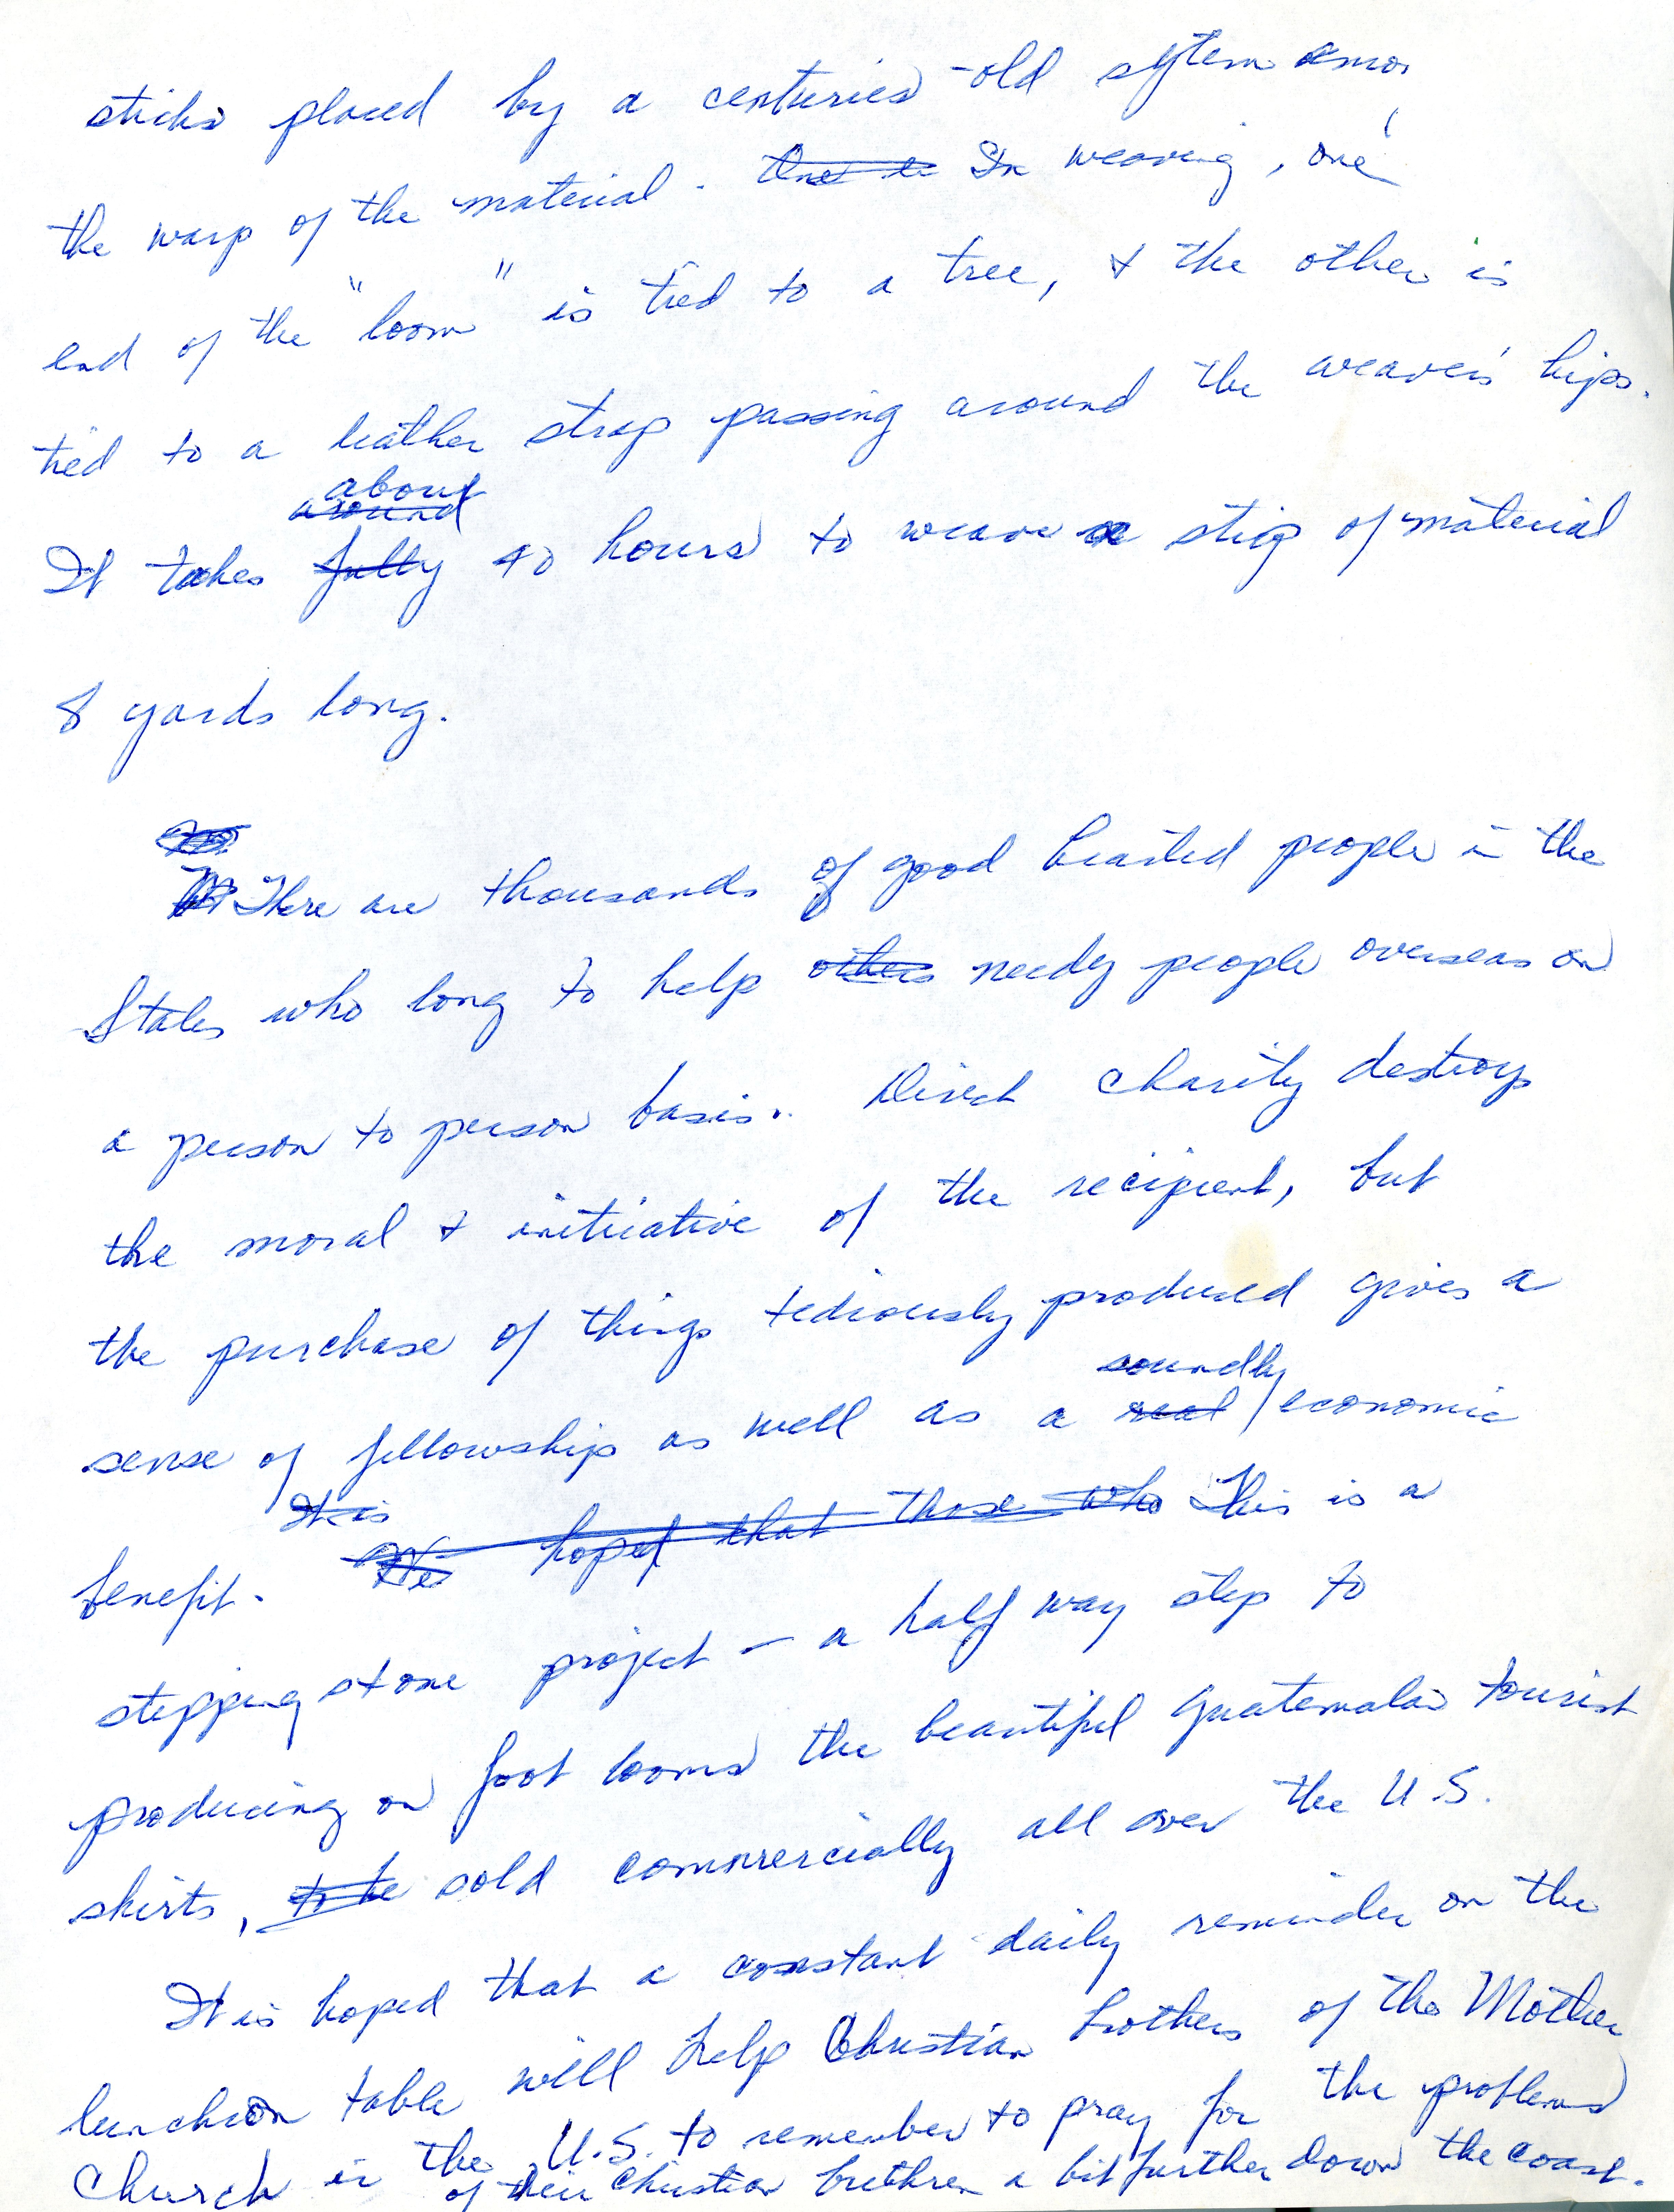 sticks placed by a centuries-old sytem amo
the warp of the material. One e In weaving, one
end of the "loom" is tied to a tree, & the other is
tied to a leather strap passing around the weaver's hips.
about
around
It takes fully 40 hours to weave a strip of material
8 yards long.
There are thousands of good hearted people in the
States who long to help others needy people overseas on
a person to person basis. Direct charity destroys
the moral & initiative of the recipient, but
the purchase of things tediously produced gives a
soundly
sense of fellowship as well as a real / economic
It is
benefit. We hoped that those who This is a
stepping stone project - a half way step to
producing on foot looms the beautiful Guatemalan tourist
skirts, to be sold commercially all over the U.S.
It is hoped that a constant daily reminder on the
luncheon table will help Christian brothers of the Mother
Church in the U.S. to remember to pray for the problems
of their Christian brethren a bit further down the coast.